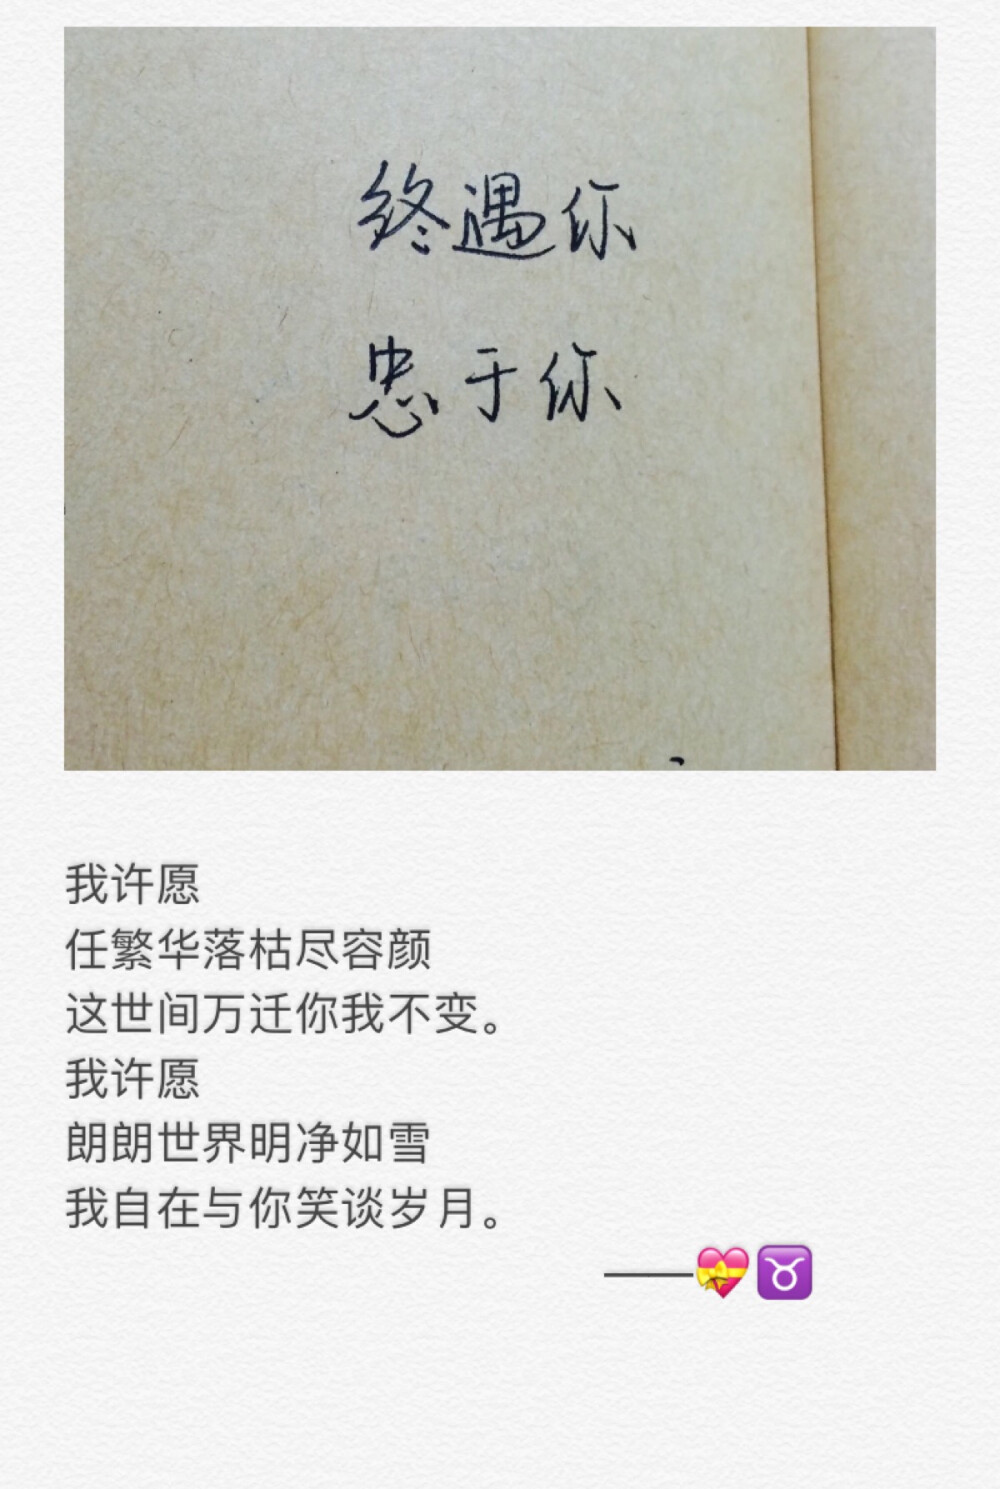 终遇你
忠于你
我许愿
任繁华落枯尽容颜
这世间万迁你我不变。
我许愿
朗朗世界明净如雪
我自在与你笑谈岁月。
——💝♉